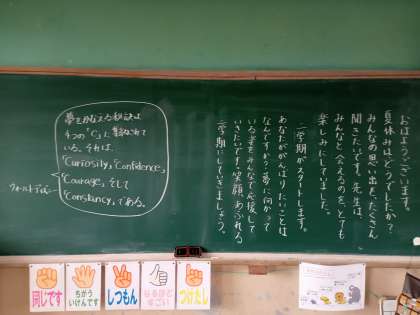 おはようございます。
夏休みはどうでしたか?
みんなの思い出をたくさん
聞きたいです。先生は、
みんなと会えるのをとても
楽しみにしていました。
二学期がスタートします。
あなたががんばりたいことは
なんですか?夢に向かって
いる姿をみんなで応援して
いきたいです。笑顔あふれる
二学期にしていきましょう。
夢をかなえる秘訣は
4つの「C」に集約されて
いる。それは、
「Curiosity」「Confidence」
「Courage」そして
「Constancy」である。
ウォルト・ディズニー
同じです
ちがう
いけんです
しつもん
なるほど
すごい
つけたし